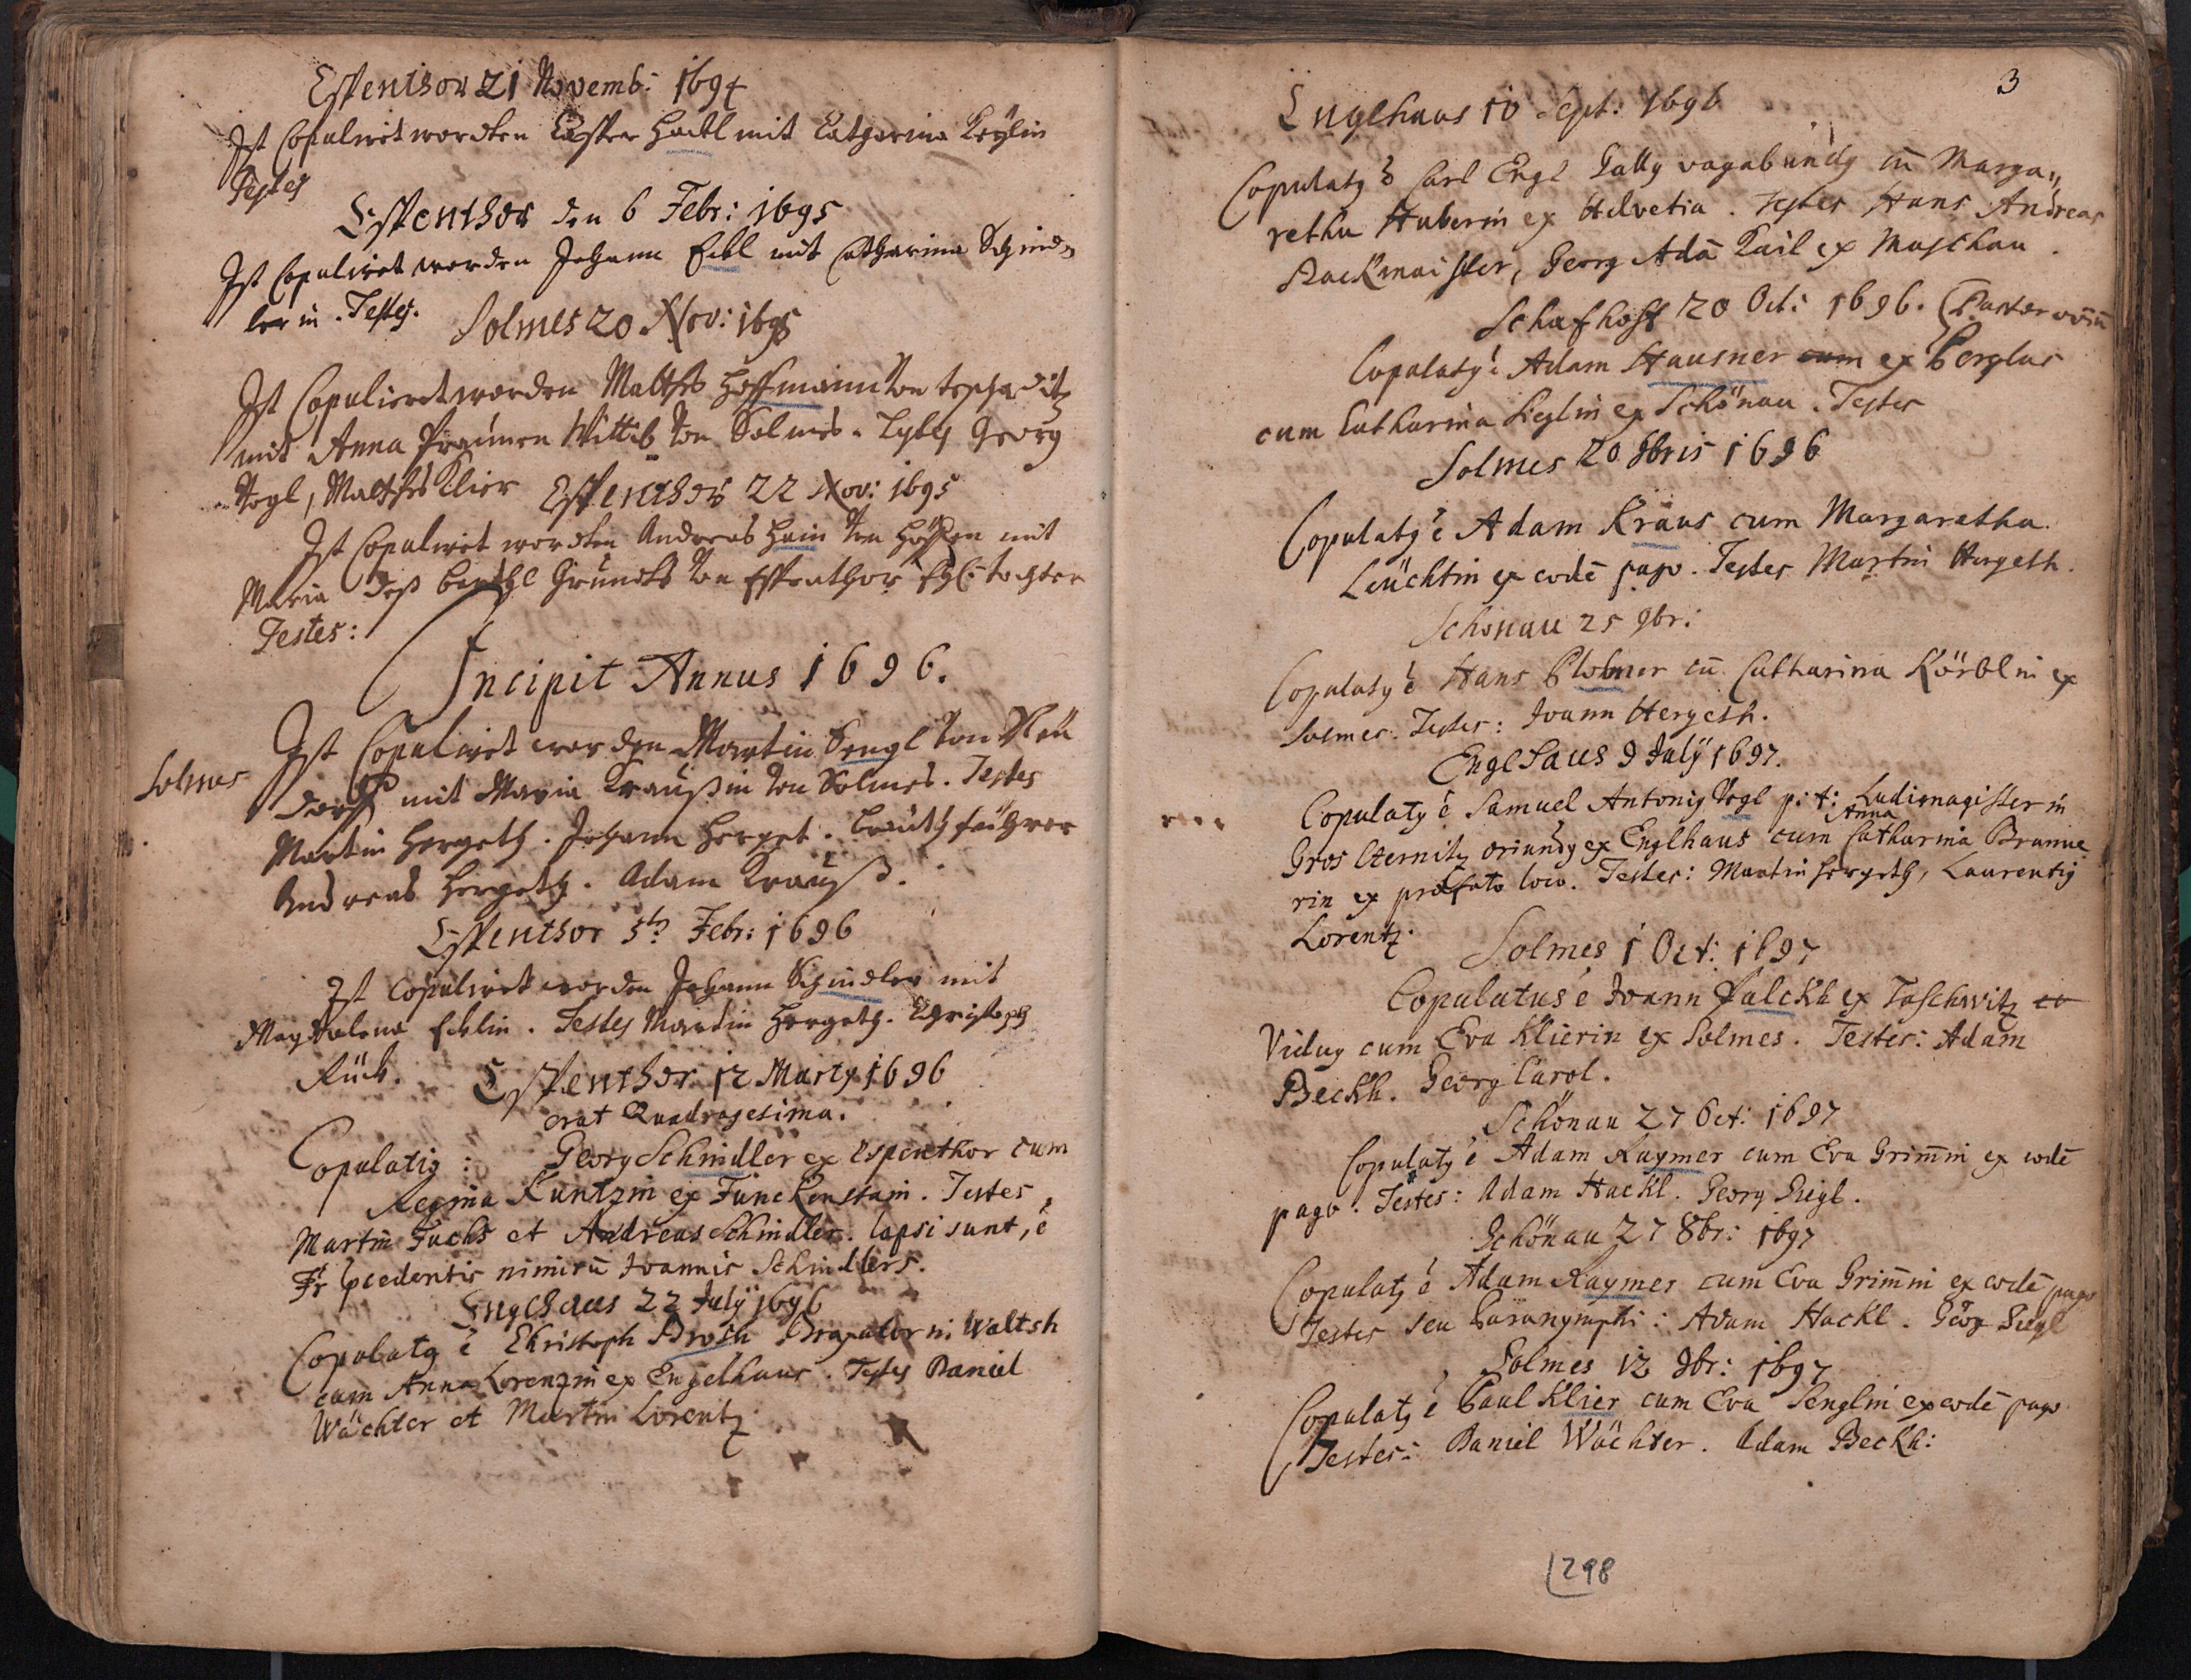 Espenthor 21 Novemb: 1694
Ist Copulirt wordten Casper Hackl mit Catharina Keylin
Testes
Espenthor den 6 Febr: 1695
Ist Copulirt worden Johann Eckl mit Catharina Schind
lerin. Testes.
Solmes 20 Nov: 1695
Ist Copulieret worden Mathes Hoffmann von
mit Anna Wittib von Solmes. Testes Georg
Vogl, Mathes Klier
Espenthor 22 Nov: 1695
Ist Copulirt wordten Andreas Hain von mit
Maria deß Gründts von Espenthor Ehl: tochter
Testes:
Incipit Annus 1696.
Solmes
Ist Copulirt worden Martin Sengl von Neü
dorff mit Maria Kraußin von Solmes. Testes
Martin Hergeth. Johann Herget. breüth führer
Andreas Hergeth. Adam Krauß.
Espenthor 5t Febr: 1696
Ist Copulirt worden Johann Schindler mit
Magdalena Ecklin. Testes Martin Hergeth. Christoph
Rück.
Espenthor 12 Marty 1696
erat Quadragesima.
Copulatiq: Georg Schindler ex Espenthor cum
Regina Kuntzin ex Funckenstain. Testes
Martin Fuchs et Andreas Schindler. lapsi sunt, è
Fr pcedentis nimirū Joannis Schindlers.
Englhaus 22 July 1696
Copulatq è Christoph Brosch in Waltsh
cum Anna Lorenzin ex Engelhaus. Testes Daniel
Wächter et Martin Lorentz
3
Englhaus 10 Sept: 1696
Copulatq è Carl Engl Gallq vagabundq cū Marga
retha Huberin ex Helvetia. Testes Hans Andreas
Rackmaister, Georg Adā Kail ex Maschau.
Schafhoff 20 Oct: 1696.
Copulatq è Adam Hausner cum ex Berglas
cum Catharina Sieglin ex Schönau. Testes
Solmes 20 9bris 1696
Copulatq è Adam Kraus cum Margaretha
Leüchtin ex eodē pago. Testes Martin Hergeth.
Schönau 25 9br:
Copulatq è Hans Plobner cū Catharina Körblin ex
Solmes. Testes: Joann Hergeth.
Englhaus 9 July 1697.
Copulatq è Samuel Antoniq Vogl p: t: Ludimagister in
Anna
Gros Oternitz oriundq ex Englhaus cum Catharina Brunne
rin ex praefato loco. Testes: Martin Hergeth, Laurentiq
Lorentz.
Solmes 1 Oct: 1697
Copulatus è Joann Falckh ex Taschwitz
Viduq cum Eva Klierin ex Solmes. Testes: Adam
Beckh. Georg Carol.
Schönau 27 Oct: 1697
Copulatq è Adam Raymer cum Eva Grim̄in ex eodē
pago. Testes: Adam Hackl. Georg Siegl.
Schönau 27 8br: 1697
Copulatq è Adam Raymer cum Eva Grim̄in ex eodē pago
Testes seu Paranymphi: Adam Hackl. Georg Siegl
Solmes 12 9br: 1697
Copulatq è Paul Klier cum Eva Senglin ex eodē pago
Testes: Daniel Wächter. Adam Beckh:
298